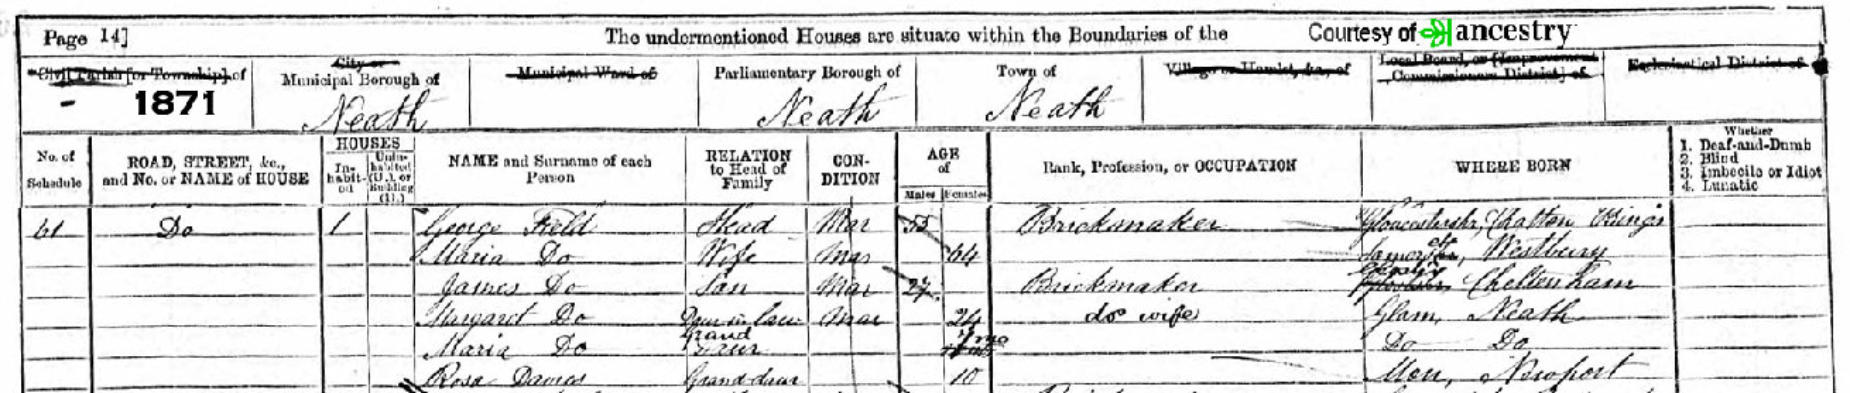 Page 14] The undermentioned Houses are situate within the Boundaries of the Courtesy of ancestry
Civil Parish [or Township] of City or Municipal Borough of Municipal Ward of Parliamentary Borough of Town of Village or Hamlet, &c., of Local Board, or [Improvement Commissioners District] of Ecclesiastical District of
- 1871 Neath Neath Neath
No. of Schedule ROAD, STREET, &c., and No. or NAME of HOUSE HOUSES In-habit-ed Unin-habited (U.), or Building (B.) NAME and Surname of each Person RELATION to Head of Family CON-DITION AGE of Males Females Rank, Profession, or OCCUPATION WHERE BORN Whether 1. Deaf-and-Dumb 2. Blind 3. Imbecile or Idiot 4. Lunatic
61 Do 1 George Field Head Mar 55 Brickmaker Gloucestershr, Kings
Maria Do Wife Mar 64 Westbury
James Do Son Mar 27 Brickmaker Cheltenham
Margaret Do Daur in law Mar 24 do wife Glam, Neath
Maria Do Grand Daur 7 mo Do Do
Rosa Davies Grand-daur 10 Mon, Newport